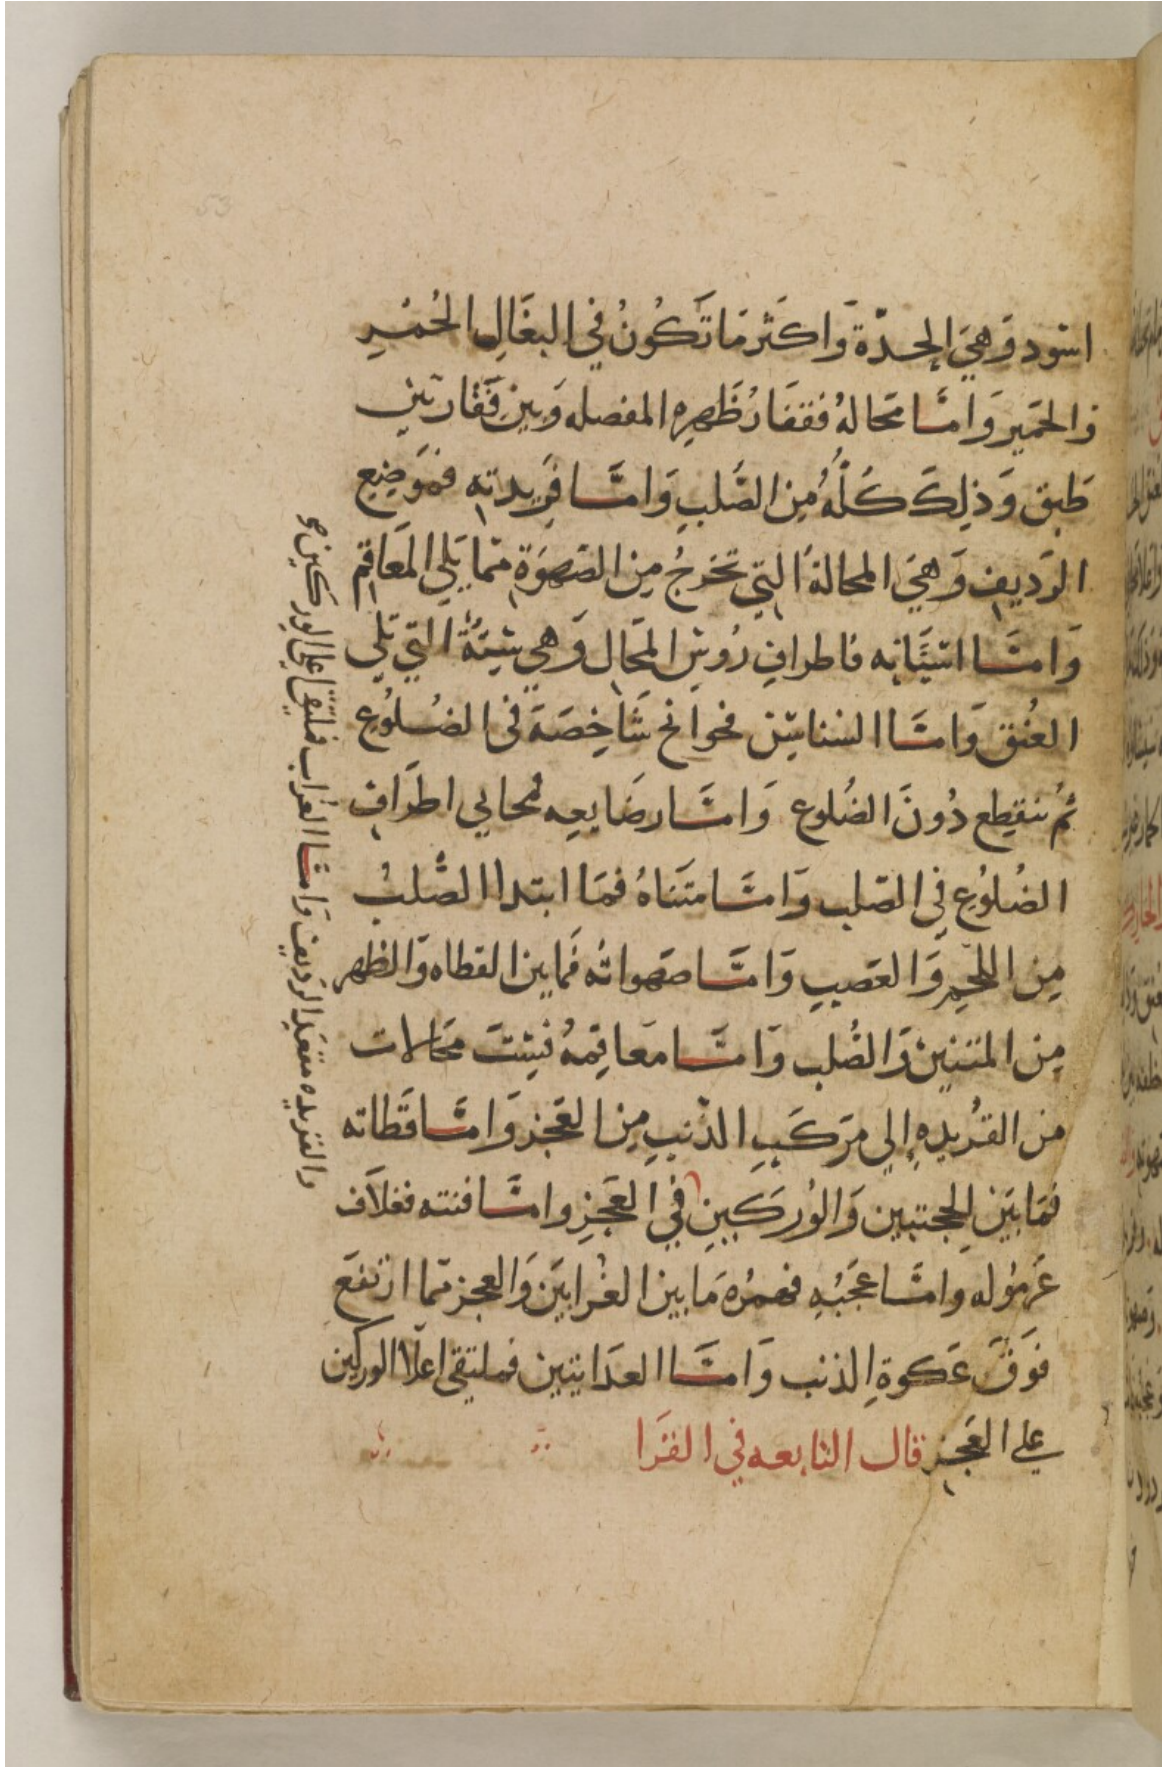 اسود وَهيَ الجدّة وَاكثر مَا تَكُونُ في البغَالِ الحُمْرِ
وَالحَمير وَامَّا مَحَالهُ ففقَارُ ظَهرِه المفصله وَبين فَقارتين
طَبق وَذلِكَ كُلُّهُ مِن الصُّلبِ وَامَّا فَرِيدته فموَضِع
الرَديف وَهيَ المحالةُ التي تخرجُ مِن الصَهوَة ممّا يَلي المَعَاقم
وَامَّا اسنَانه فاطراف رُوس المَحال وَهي ستَةٌ التي تلي
العُنق وَامَّا السناسن فجوانح شَاخِصَة في الضُلوُع
ثمُ تنقطع دُونَ الضُلوع وَامَّا رصَايعه لمحاني اطرَاف
الضُلوُع في الصّلب وَامَّا متَناهُ فمَا ابتدا الصُّلبُ
مِن اللحمِ وَالعَصبِ وَامَّا صَهواتُه فَما بين القطاه وَالظهر
مِن المتنين وَالصُّلب وَامَّا مَعَاقِمهُ فبينتَ مَحَالات
من الفَرُيده إلي مَركَبِ الذّنبِ مِن العَجز وَامَّا قَطاته
فمَا بَين الحجبتين وَالوُركَيِن في العَجزِ وامَّا قنبه فغلاَف
غَرموُله وامَّا عَجبُهِ فهمزُه مَا بين الغُرابَين وَالعجز مّما ارتفعَ
فَوَقَ عَكوةِ الذنب وَامَّا الغرَابين فملتقي اعلا الوركين
علي العَجز قال التابعه في القَرَا
والفريده مقعد الرَديف وَامَّا الغُراب فملتقى اعلى الوركين